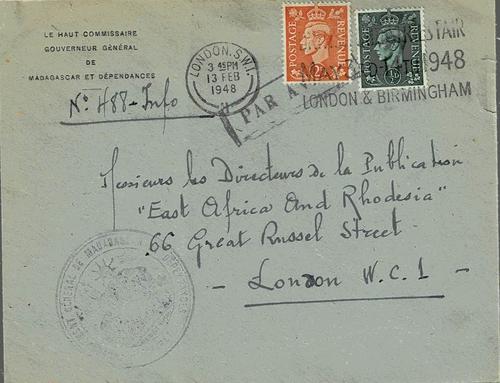 LE HAUT COMMISSAIRE
GOUVERNEUR GÉNÉRAL
DE
MADAGASCAR ET DÉPENDANCES
No 488-Info
LONDON.S.W.1.
3 45PM
13 FEB
1948
POSTAGE REVENUE
POSTAGE REVENUE
MAY 1948
LONDON & BIRMINGHAM
PAR
Messieurs les Directeurs de la Publication
"East Africa And Rhodesia"
66 Great Russel Street
London W.C.1
GÉNÉRAL DE MADAGASCAR